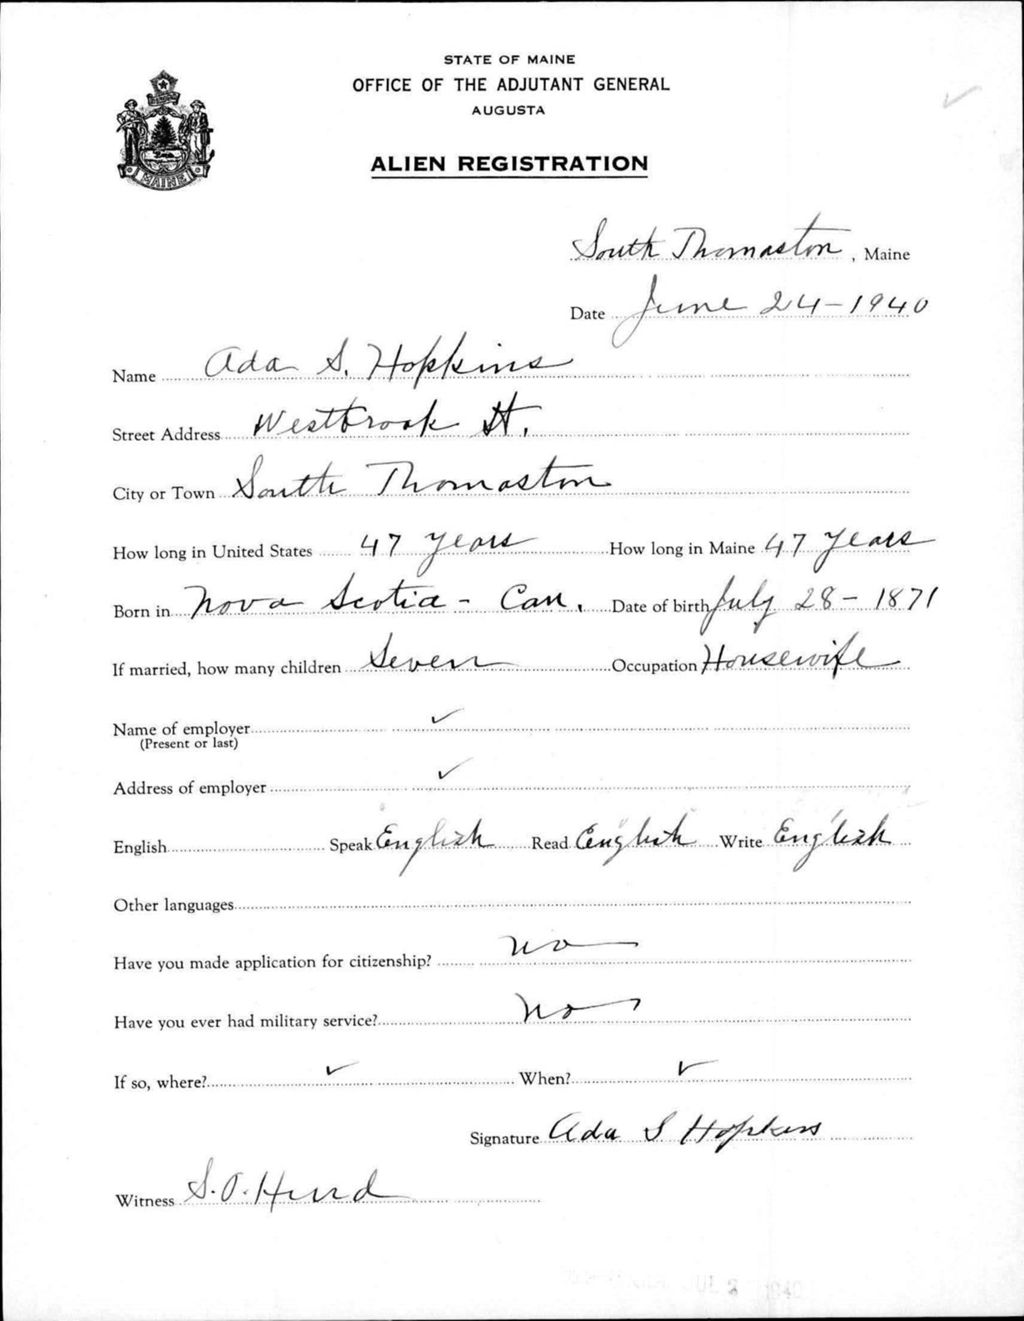 STATE OF MAINE
OFFICE OF THE ADJUTANT GENERAL
AUGUSTA
ALIEN REGISTRATION
MAINE
South Thomaston, Maine
Date June 24-1940
Name Ada S. Hopkins
Street Address Westbrook St.
City or Town South Thomaston
How long in United States 47 years How long in Maine 47 years
Born in Nova Scotia - Can. Date of birth July 28-1871
If married, how many children Seven Occupation Housewife
Name of employer ✓
(Present or last)
Address of employer ✓
English Speak English Read English Write English
Other languages
Have you made application for citizenship? no
Have you ever had military service? no
If so, where? ✓ When? ✓
Signature Ada S Hopkins
Witness S.O. Hurd
JUL 2 1940